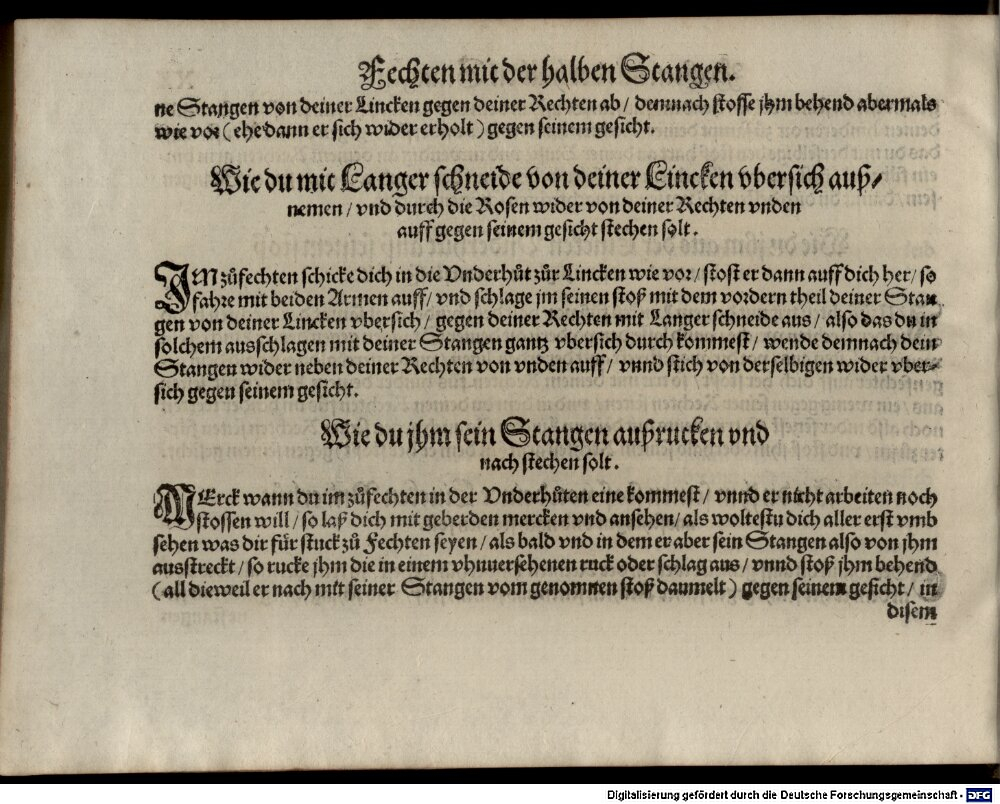 Fechten mit der halben Stangen.
ne Stangen von deiner Lincken gegen deiner Rechten ab / demnach stosse jhm behend abermals
wie vor ( ehe dann er sich wider erholt ) gegen seinem gesicht.
Wie du mit Langer schneide von deiner Lincken vbersich auß⸗
nemen / vnd durch die Rosen wider von deiner Rechten vnden
auff gegen seinem gesicht stechen solt.
IM zůfechten schicke dich in die Vnderhůt zůr Lincken wie vor / stost er dann auff dich her / so
fahre mit beiden Armen auff / vnd schlage jm seinen stoß mit dem vordern theil deiner Stan
gen von deiner Lincken vbersich / gegen deiner Rechten mit Langer schneide aus / also das du in
solchem ausschlagen mit deiner Stangen gantz vbersich durch kommest / wende demnach dein
Stangen wider neben deiner Rechten von vnden auff / vnnd stich von derselbigen wider vber⸗
sich gegen seinem gesicht.
Wie du jhm sein Stangen außrucken vnd
nach stechen solt.
MErck wann du im zůfechten in der Vnderhůten eine kommest / vnnd er nicht arbeiten noch
stossen will / so laß dich mit geberden mercken vnd ansehen / als woltestu dich aller erst vmb
sehen was dir für stuck zů Fechten seyen / als bald vnd in dem er aber sein Stangen also von jhm
ausstreckt / so rucke jhm die in einem vhnuersehenen ruck oder schlag aus / vnnd stoß jhm behend
( all dieweil er nach mit seiner Stangen vom genomnen stoß daumelt ) gegen seinem gesicht / in
disem
Digitalisierung gefördert durch die Deutsche Forschungsgemeinschaft - DFG